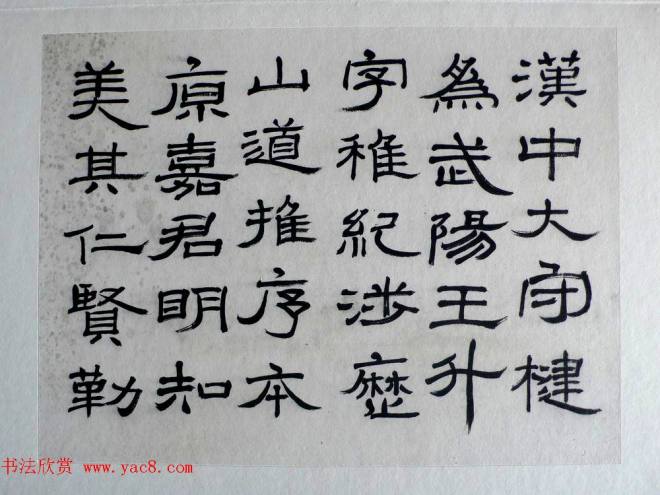 漢中大守楗
為武陽王升
字稚紀涉歷
山道推序本
原嘉君明知
美其仁賢勒
书法欣赏 www.yac8.com